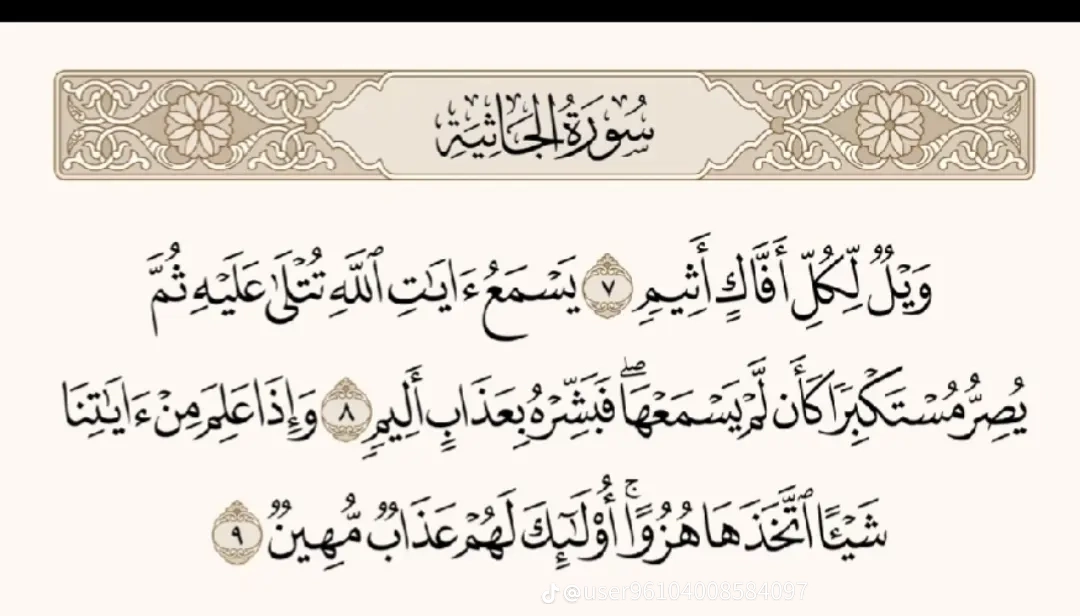 سُورَةُ الجَاثِيَةِ
وَيْلٌ لِّكُلِّ أَفَّاكٍ أَثِيمٍ ٧ يَسْمَعُ ءَايَٰتِ ٱللَّهِ تُتْلَىٰ عَلَيْهِ ثُمَّ
يُصِرُّ مُسْتَكْبِرًا كَأَن لَّمْ يَسْمَعْهَاۖ فَبَشِّرْهُ بِعَذَابٍ أَلِيمٍ ٨ وَإِذَا عَلِمَ مِنْ ءَايَٰتِنَا
شَيْـًٔا ٱتَّخَذَهَا هُزُوًاۚ أُوْلَٰٓئِكَ لَهُمْ عَذَابٌ مُّهِينٌ ٩
@user96104008584097